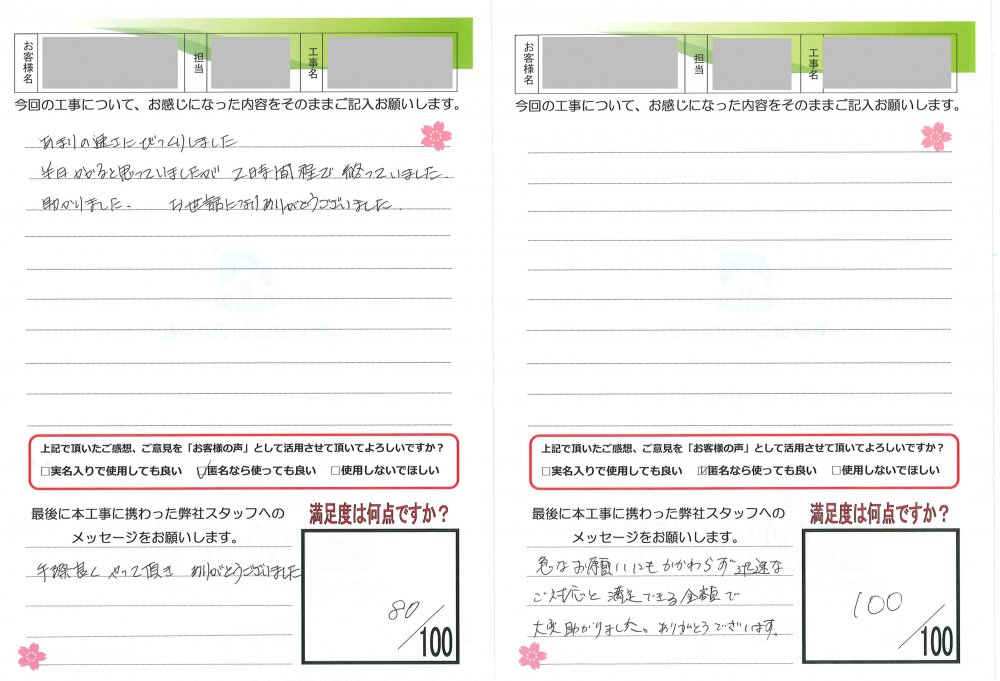 お客様名
担当
工事名
今回の工事について、お感じになった内容をそのままご記入お願いします。
あまりの速工にびっくりしました
半日かかると思っていましたが 2時間程で終っていました.
助かりました. お世話になりありがとうございました.
上記で頂いたご感想、ご意見を「お客様の声」として活用させて頂いてよろしいですか?
□実名入りで使用しても良い ☑匿名なら使っても良い □使用しないでほしい
最後に本工事に携わった弊社スタッフへの
メッセージをお願いします。
手際良く やって頂き ありがとうございました
満足度は何点ですか?
80/100
お客様名
担当
工事名
今回の工事について、お感じになった内容をそのままご記入お願いします。
上記で頂いたご感想、ご意見を「お客様の声」として活用させて頂いてよろしいですか?
□実名入りで使用しても良い ☑匿名なら使っても良い □使用しないでほしい
最後に本工事に携わった弊社スタッフへの
メッセージをお願いします。
急なお願いにもかかわらず 迅速な
ご対応と満足できる金額で
大変助かりました。ありがとうございます。
満足度は何点ですか?
100/100